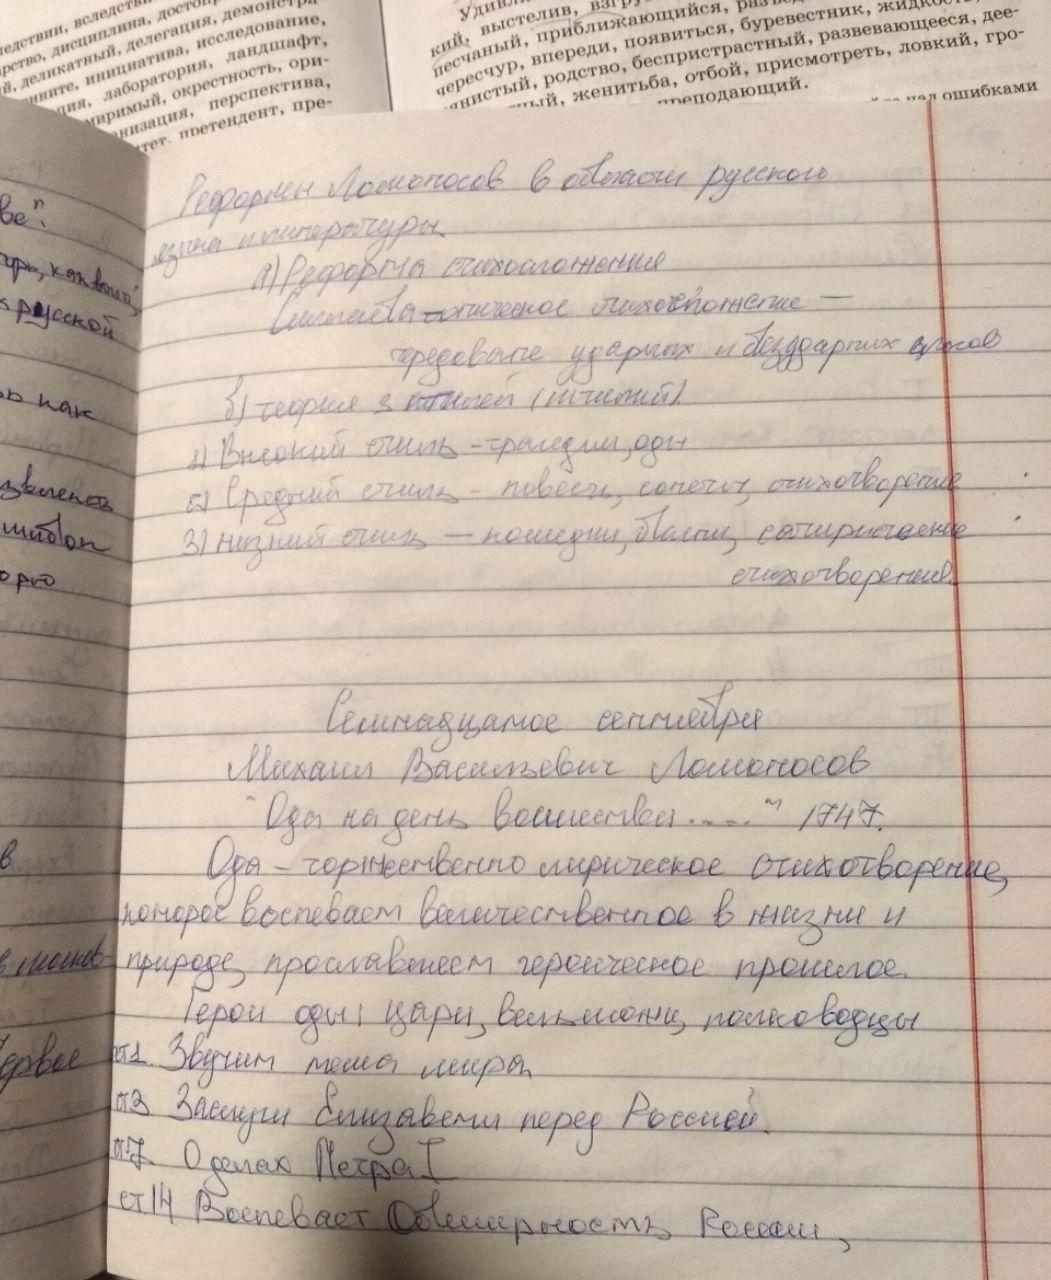 ледствии, вследстви
рство, дисциплина, досто
й, деликатный, делегация, демонстра-
ините, инициатива, исследование,
ция, лаборатория, ландшафт,
миримый, окрестность, ори-
анизация, перспектива,
тет, претендент, пре-
Удивл
кий, выстелив, взгру
песчаный, приближающийся, разъ
чересчур, впереди, появиться, буревестник, жидкость,
янистый, родство, беспристрастный, развевающееся, дее-
ный, женитьба, отбой, присмотреть, ловкий, гро-
преподающий.
над ошибками
Реформы Ломоносов в области русского
языка и литературы
а) Реформа стихосложения
Силлабо-тоническое стихосложение —
чередование ударных и бездударных слогов
б) теория 3 штилей (штилий)
1) Высокий стиль - трагедии, оды
2) Средний стиль - повесть, сонеты, стихотворение
3) низкий стиль — комедии, басни, сатирические
стихотворения.
Семнадцатое сентября
Михаил Васильевич Ломоносов
"Ода на день восшествия ....." 1747.
Ода - торжественно лирическое стихотворение,
которое воспевает величественное в жизни и
природе, прославляет героическое прошлое.
Герои оды: цари, вельможи, полководцы
ст1. Звучит тема мира,
ст3 Заслуги Елизаветы перед Россией.
ст.7 О делах Петра I
ст14 Воспевает Обширность России,
ве".
, как вои
русской
ь как
в
ервое